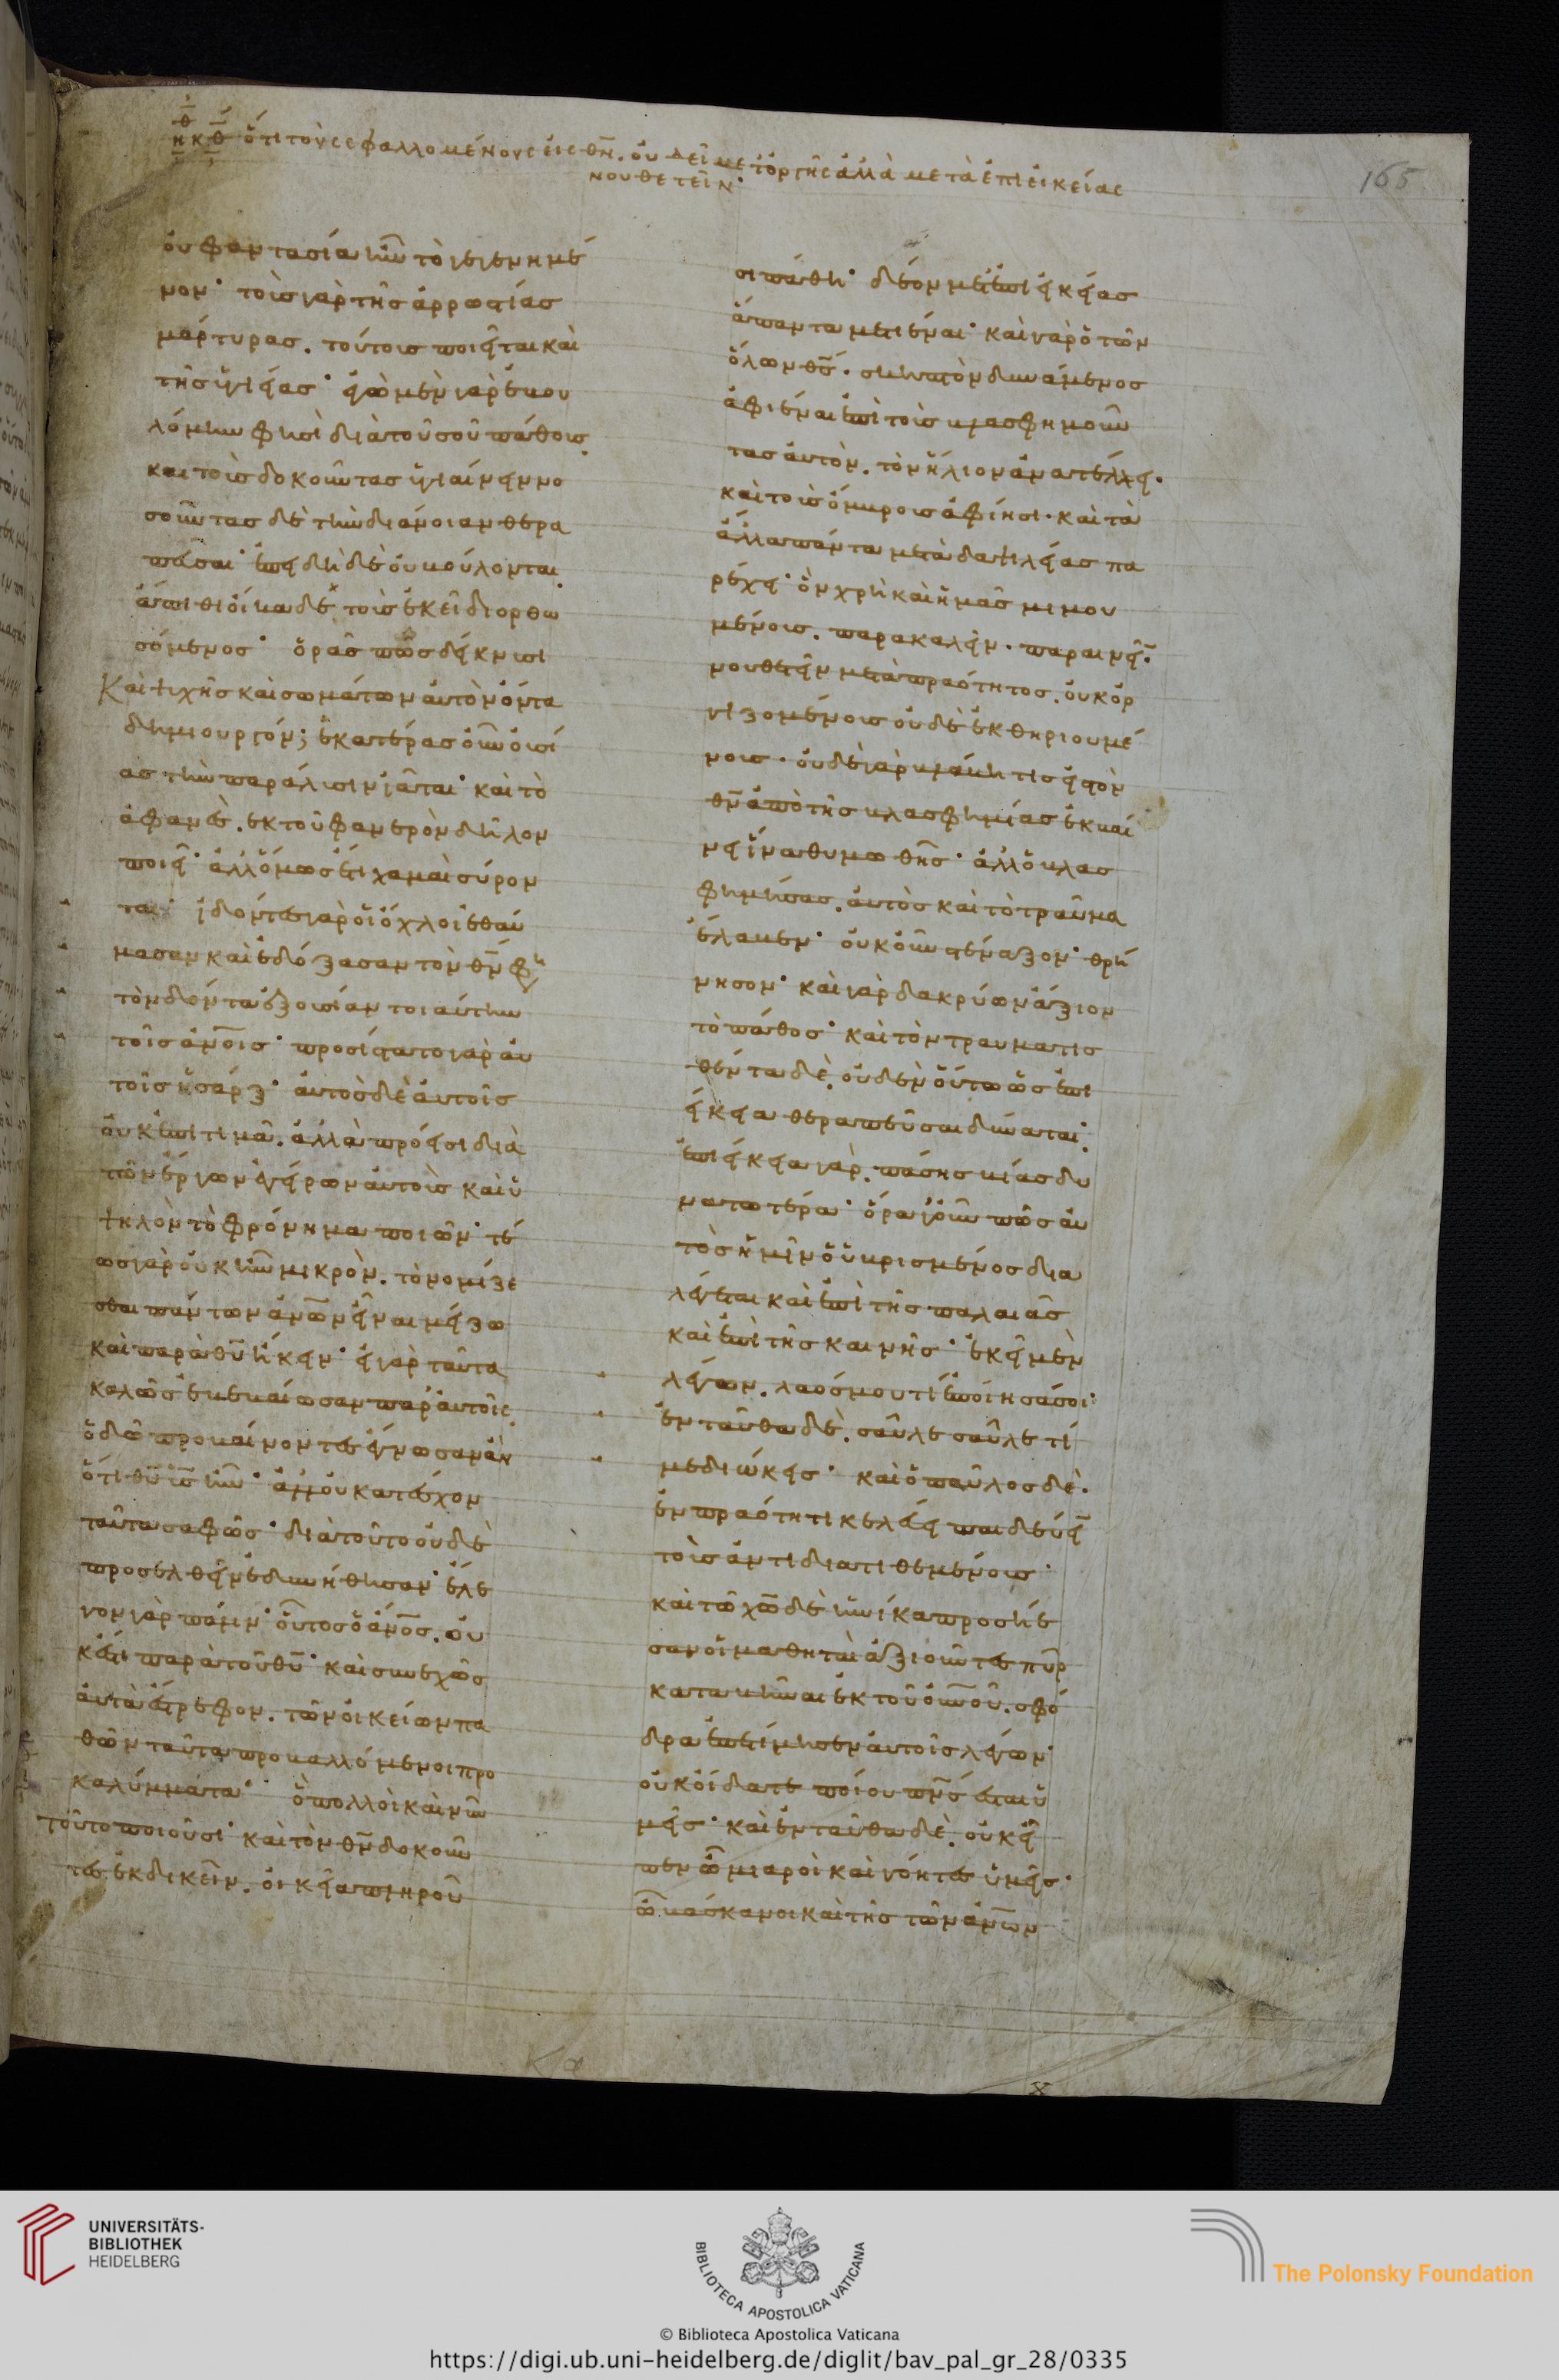 ὅτι τοὺς σφαλλομένους εἰς θν̄. οὐ δεῖ μετ ὀργῆς ἀλλὰ μετὰ ἐπιεικείας
νουθετεῖν·
165
οὐ φαντασία ἦν τὸ γεγενημέ
νον· τοὺς γὰρ τῆς ἀρρωστίας
μάρτυρας. τούτους ποιεῖται καὶ
τῆς ὑγιείας· ἐγὼ μὲν γὰρ ἐβου
λόμην φησὶ διὰ τοῦ σοῦ πάθους.
καὶ τοὺς δοκοῦντας ὑγιαίνειν νο
σοῦντας δὲ τὴν διάνοιαν θερα
πεῦσαι· ἐπειδὴ δὲ οὐ βούλονται.
ἄπιθι οἴκαδε τοὺς ἐκεῖ διορθω
σόμενος· ὁρᾶς πῶς δείκνυσι
Καὶ ψυχῆς καὶ σωμάτων αὐτὸν ὄντα
δημιουργόν; ἑκατέρας οὖν οὐσί
ας τὴν παράλυσιν ἰᾶται· καὶ τὸ
ἀφανὲς. ἐκ τοῦ φανεροῦ δῆλον
ποιεῖ· ἀλλ ὅμως ἔτι χαμαὶ σύρον
ται· ἰδόντες γὰρ οἱ ὄχλοι ἐθαύ
μασαν καὶ ἐδόξασαν τὸν θν̄ φη
τὸν δόντα ἐξουσίαν τοιαύτην
τοῖς ἀν̄οις· προσίστατο γὰρ αὐ
τοῖς ἡ σάρξ· αὐτὸς δὲ αὐτοῖς
οὐκ ἐπιτιμᾶ. ἀλλὰ πρόεισι διὰ
τῶν ἔργων διεγείρων αὐτοὺς καὶ ὑ
ψηλὸν τὸ φρόνημα ποιῶν· τέ
ως γὰρ οὐκ ἦν μικρὸν. τὸ νομίζε
σθαι πάντων ἀν̄ων εἶναι μείζω
καὶ παρὰ θῡ ἥκειν· εἰ γὰρ ταῦτα
καλῶς ἐβεβαίωσαν παρ ἑαυτοῖς.
ὁδῷ προβαίνοντες ἔγνωσαν ἂν
ὅτι θῡ ῡς̄ ἦν· ἀλλ οὐ κατεῖχον
ταῦτα σαφῶς· διὰ τοῦτο οὐδὲ
προσελθεῖν ἐδυνήθησαν· ἔλε
γον γὰρ πάλιν· οὗτος ὁ ἄν̄ος. οὐ
κ ἔστι παρὰ τοῦ θῡ· καὶ συνεχῶς
αὐτὰ ἔστρεφον. τῶν οἰκείων πα
θῶν ταῦτα προβαλλόμενοι προ
καλύμματα· ὃ πολλοὶ καὶ νῦν
τοῦτο ποιοῦσι· καὶ τὸν θν̄ δοκοῦν
τες ἐκδικεῖν. οἰκεῖα πληροῦ
σι πάθη· δέον μετ ἐπιεικείας
ἅπαντα μετιέναι· καὶ γὰρ ὁ τῶν
ὅλων θς̄. σκηπτὸν δυνάμενος
ἀφιέναι ἐπὶ τοὺς βλασφημοῦν
τας αὐτὸν. τὸν ἥλιον ἀνατέλλει·
καὶ τοὺς ὄμβρους ἀφίησι· καὶ τὰ
ἄλλα πάντα μετὰ δαψιλείας πα
ρέχει· ὃν χρὴ καὶ ἡμᾶς μιμου
μένους. παρακαλεῖν. παραινεῖν·
νουθετεῖν μετὰ πραότητος. οὐκ ὀρ
γιζομένους οὐδὲ ἐκθηριουμέ
νους· οὐδὲ γὰρ βλάβη τις εἰς τὸν
θν̄ ἀπὸ τῆς βλασφημίας ἐκβαί
νει ἵνα θυμωθῆς· ἀλλ ὁ βλασ
φημήσας. αὐτὸς καὶ τὸ τραῦμα
ἔλαβεν· οὐκοῦν στέναξον· θρή
νησον· καὶ γὰρ δακρύων ἄξιον
τὸ πάθος· καὶ τὸν τραυματισ
θέντα δὲ. οὐδὲν οὕτω ὡς ἐπι
είκεια θεραπεῦσαι δύναται·
ἐπιείκεια γὰρ. πάσης βίας δυ
νατωτέρα· ὅρα γοῦν πῶς αὐ
τὸς ἡμῖν ὁ ὑβρισμένος δια
λέγεται καὶ ἐπὶ τῆς παλαιᾶς
καὶ ἐπὶ τῆς καινῆς· ἐκεῖ μὲν
λέγων. λαός μου τί ἐποίησά σοι·
ἐνταῦθα δὲ. σαῦλε σαῦλε τί
με διώκεις· καὶ ὁ παῦλος δὲ.
ἐν πραότητι κελεύει παιδεύειν
τοὺς ἀντιδιατιθεμένους·
καὶ τῷ χω̄ δὲ ἡνίκα προσῆε
σαν οἱ μαθηταὶ ἀξιοῦντες πῦρ
καταβῆναι ἐκ τοῦ οὐν̄οῦ. σφό
δρα ἐπετίμησεν αὐτοῖς λέγων·
οὐκ οἴδατε ποίου πν̄ς ἐστε ὑ
μεῖς· καὶ ἐνταῦθα δὲ. οὐκ εἶ
πεν ὦ μιαροὶ καὶ γόητες ὑμεῖς·
ὦ βάσκανοι καὶ τῆς τῶν ἀν̄ων
UNIVERSITÄTS-
BIBLIOTHEK
HEIDELBERG
BIBLIOTECA APOSTOLICA VATICANA
The Polonsky Foundation
© Biblioteca Apostolica Vaticana
https://digi.ub.uni-heidelberg.de/diglit/bav_pal_gr_28/0335